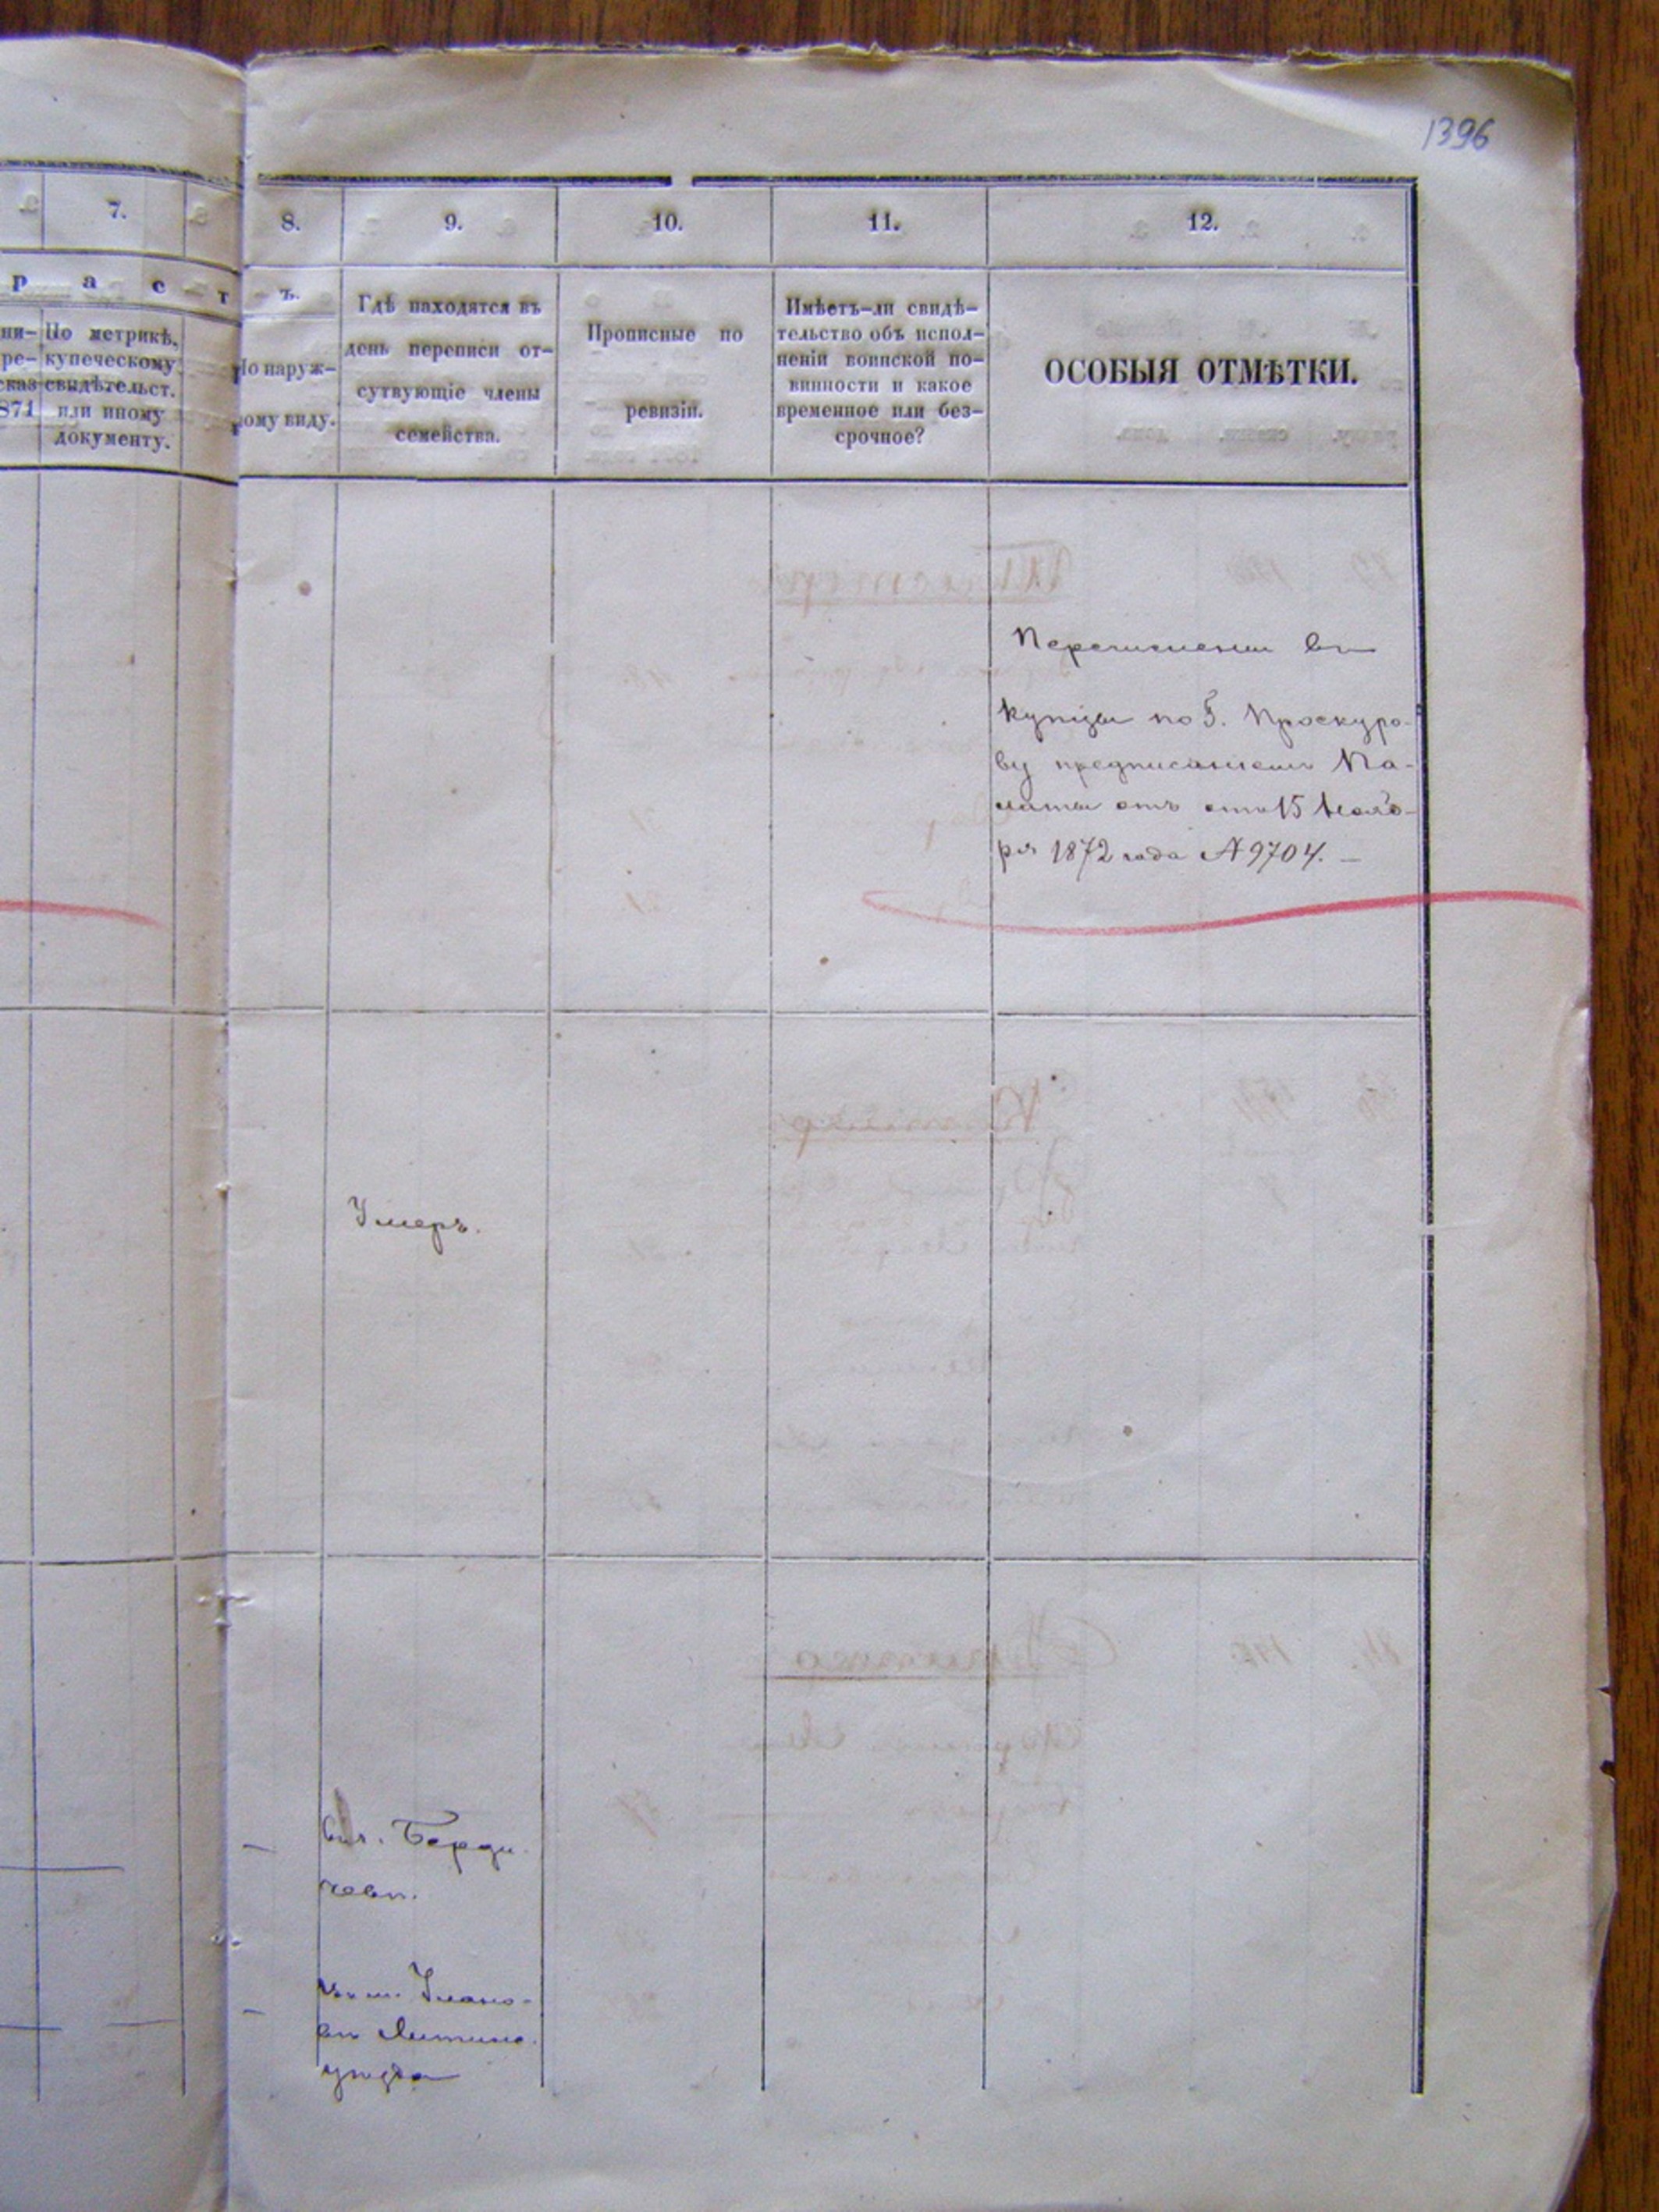 1396
7.
8.
9.
10.
11.
12.
р а с т
ъ.
ни-
ре-
сказ
871
По метрикѣ,
купеческому
свидѣтельст.
или иному
документу.
По наруж-
ному виду.
Гдѣ находятся въ
день переписи от-
сутвующіе члены
семейства.
Прописные по
ревизіи.
Имѣетъ-ли свидѣ-
тельство объ испол-
неніи воинской по-
винности и какое
временное или без-
срочное?
ОСОБЫЯ ОТМѢТКИ.
Перечислены въ
купцы по г. Проскуро-
ву предписаніемъ Па-
латы отъ 15 Нояб-
ря 1872 года № 9704.
Умеръ.
Берди-
чевѣ.
Улано-
въ Литинс.
уѣзда